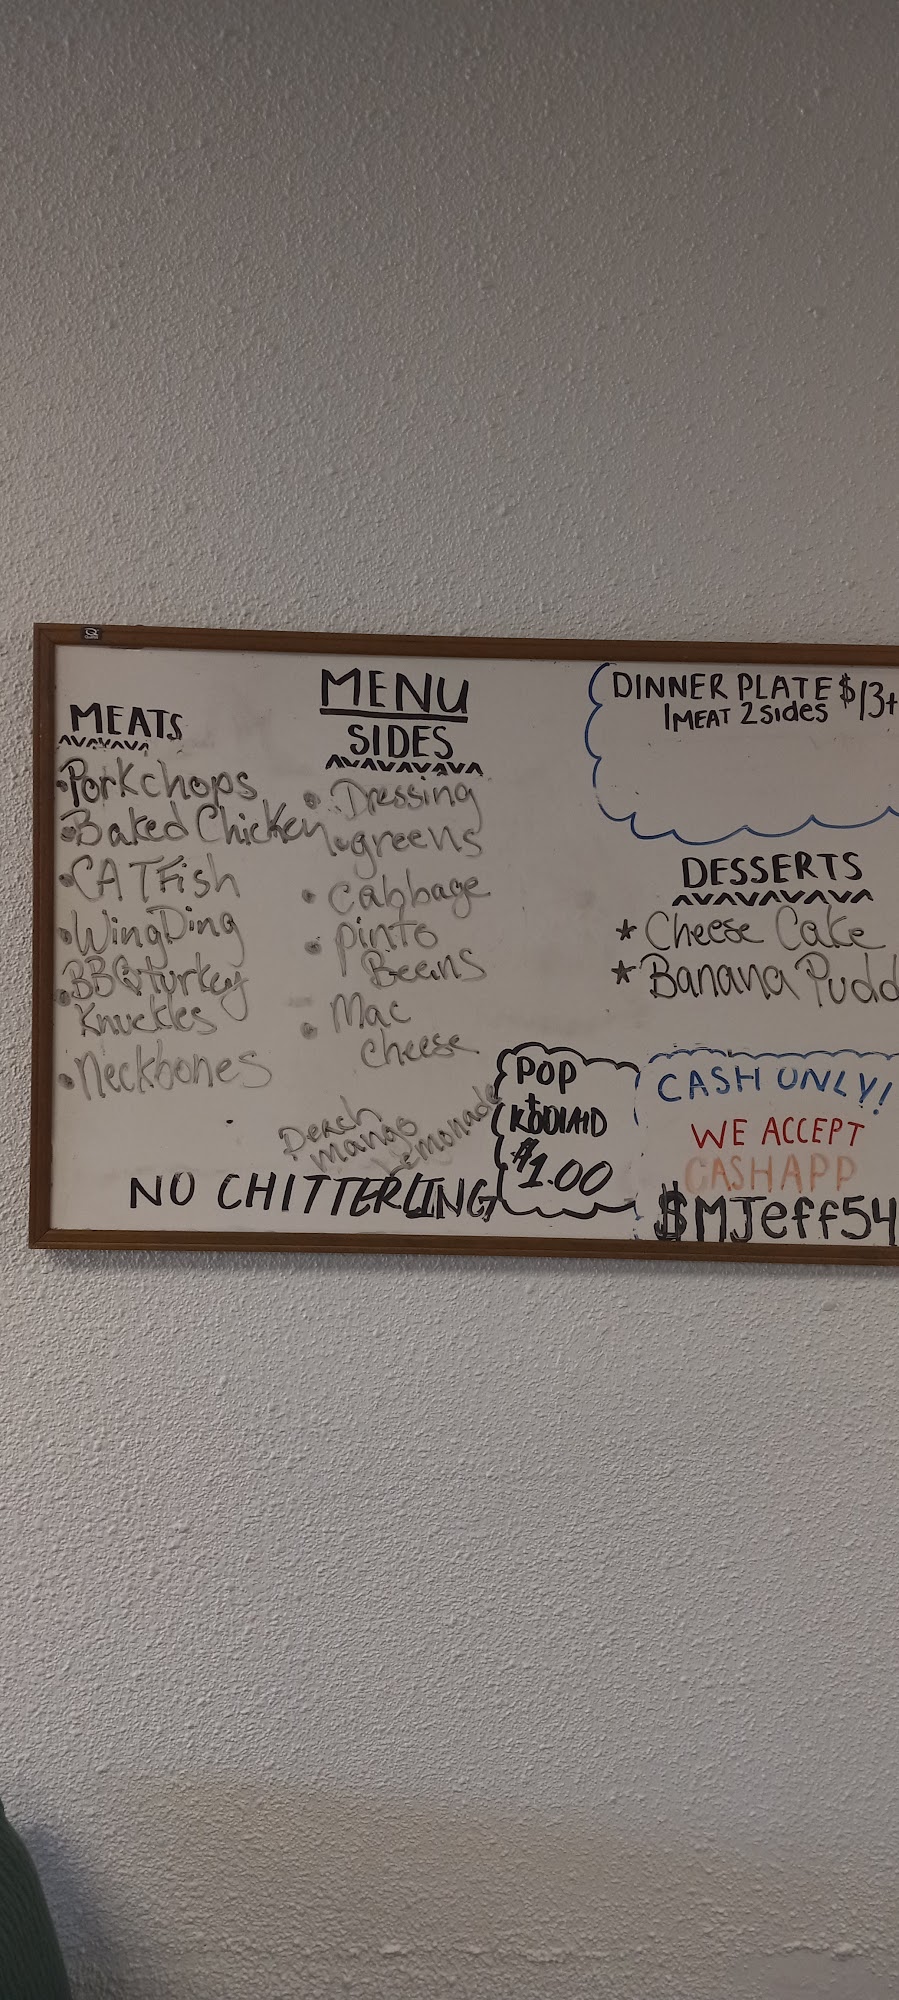 MENU
MEATS
Porkchops
Baked Chicken
CATFish
WingDing
BBQ turkey
Knuckles
Neckbones
SIDES
Dressing
greens
Cabbage
pinto
Beans
Mac
cheese
Peach
mango
Lemonade
NO CHITTERLING
DINNER PLATE $13+
1MEAT 2sides
DESSERTS
* Cheese Cake
* Banana Pudd
POP
KOOLAID
$1.00
CASH ONLY!
WE ACCEPT
CASHAPP
$MJeff54